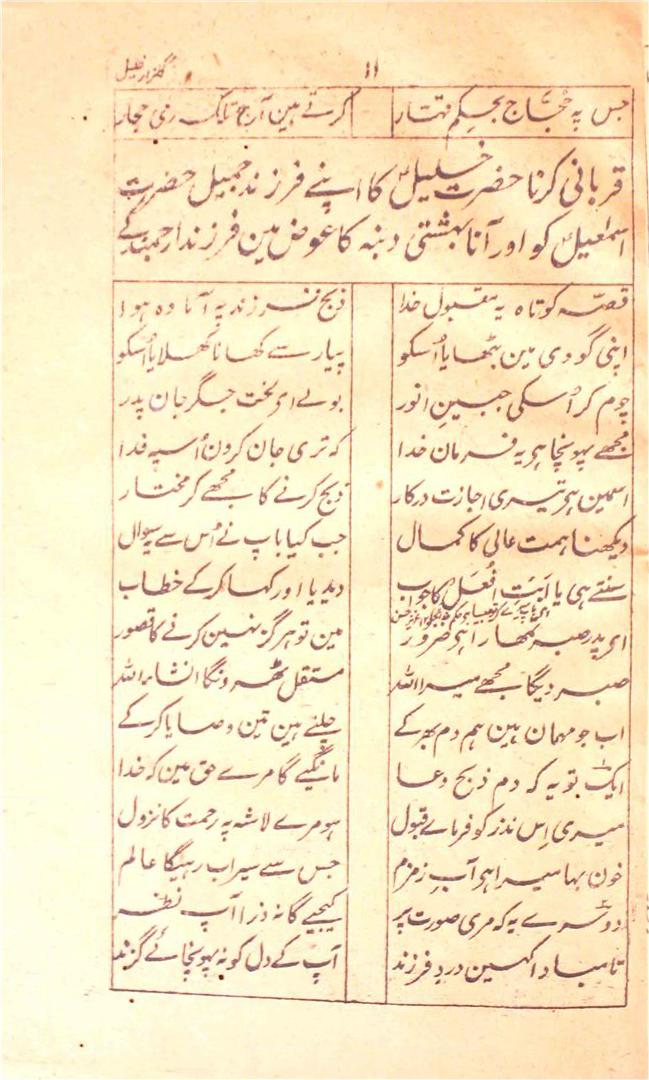 گلزار خلیل
۱۱
جس پہ حُجّاج بحکمِ قہّار کرتے ہین آج تلک رمی جمار
قربانی کرنا حضرت خلیلؑ کا اپنے فرزند جمیل حضرت
اسمٰعیلؑ کو اور آنا بہشتی دنبہ کا عوض مین فرزند ارجمند کے
قصّہ کوتاہ یہ مقبول خدا ذبح فرزند پہ آمادہ ہوا
اپنی گودی مین بٹھایا اُسکو پیار سے کھانا کھلایا اُسکو
چوم کر اُسکی جبینِ انور بولے ای لخت جگر جان پدر
مجھے پہونچا ہی یہ فرمان خدا کہ تری جان کرون اُسپہ فدا
اسمین ہی تیری اجازت درکار ذبح کرنے کا مجھے کر مختار
دیکھنا ہمت عالی کا کمال جب کیا باپ نے اُس سے یہ سوال
سنتے ہی یا اَبَتِ افْعَل کا جواب دیدیا اور کہا کرکے خطاب
ای پدر صبر تمھارا ہی ضرور مین تو ہرگز نہین کرنے کا قصور
صبر دیگا مجھے میرا اللہ مستقل ٹھہرونگا انشاء اللہ
اب جو مہمان ہین ہم دم بھر کے چلتے ہین تین وصایا کرکے
ایک تو یہ کہ دم ذبح دعا مانگیے گا مرے حق مین کہ خدا
میری اِس نذر کو فرمائے قبول ہو مرے لاشہ پہ رحمت کا نزول
خون بہا میرا ہو آبِ زمزم جس سے سیراب رہیگا عالم
دوسرے یہ کہ مری صورت پر کیجیے گا نہ ذرا آپ نظر
تا مبادا کہین دردِ فرزند آپ کے دل کو نہ پہونچائے گزند